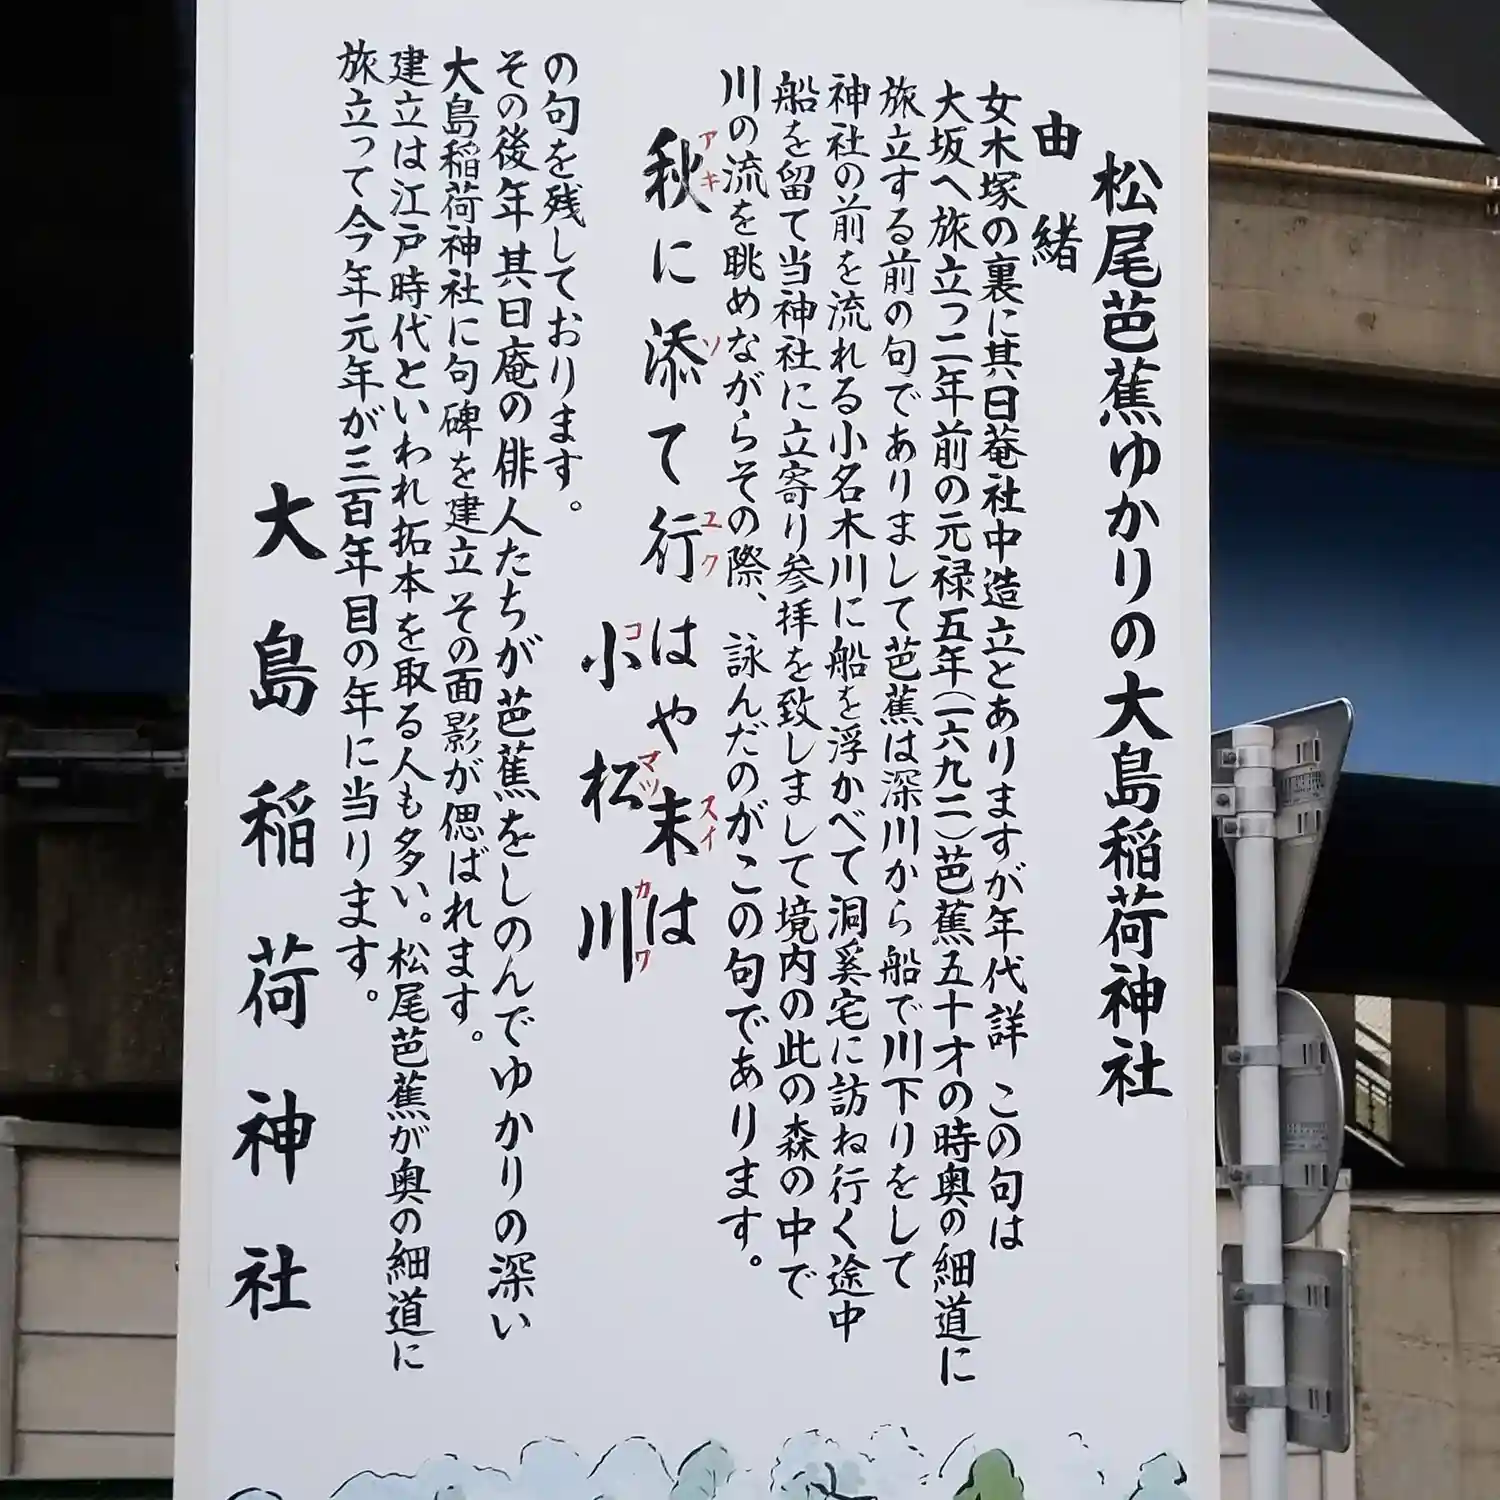 松尾芭蕉ゆかりの大島稲荷神社
由緒
女木塚の裏に其日菴社中造立とありますが年代詳 この句は
大坂へ旅立つ二年前の元禄五年(一六九二)芭蕉五十才の時奥の細道に
旅立する前の句でありまして芭蕉は深川から船で川下りをして
神社の前を流れる小名木川に船を浮かべて洞奚宅に訪ね行く途中
船を留て当神社に立寄り参拝を致しまして境内の此の森の中で
川の流を眺めながらその際、詠んだのがこの句であります。
秋に添て行はや末は
アキ ソ ユク スイ
小松川
コ マツ カワ
の句を残しております。
その後年其日庵の俳人たちが芭蕉をしのんでゆかりの深い
大島稲荷神社に句碑を建立その面影が偲ばれます。
建立は江戸時代といわれ拓本を取る人も多い。松尾芭蕉が奥の細道に
旅立って今年元年が三百年目の年に当ります。
大島稲荷神社